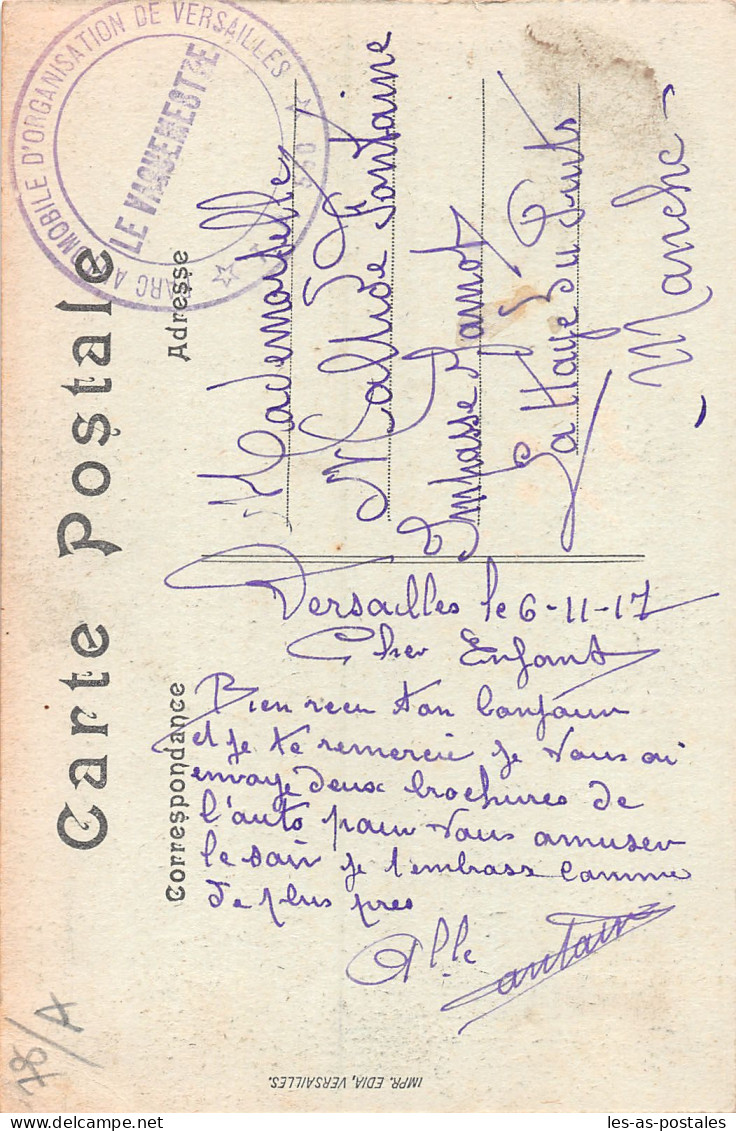 Carte Postale
PARC AUTOMOBILE D'ORGANISATION DE VERSAILLES
LE VAGUEMESTRE
Adresse
Mademoiselle
Mathide Fontaine
Imphasse
La Haye du Puits
Manche
Correspondance
Versailles le 6-11-17
Cher Enfant
Bien recu ton bonjour
et je te remercie je vous ai
envoye deux brochures de
l'auto pour vous amuser
le soir je t'embrass comme
de plus pres
IMPR. EDIA, VERSAILLES.
78/A
les-as-postales